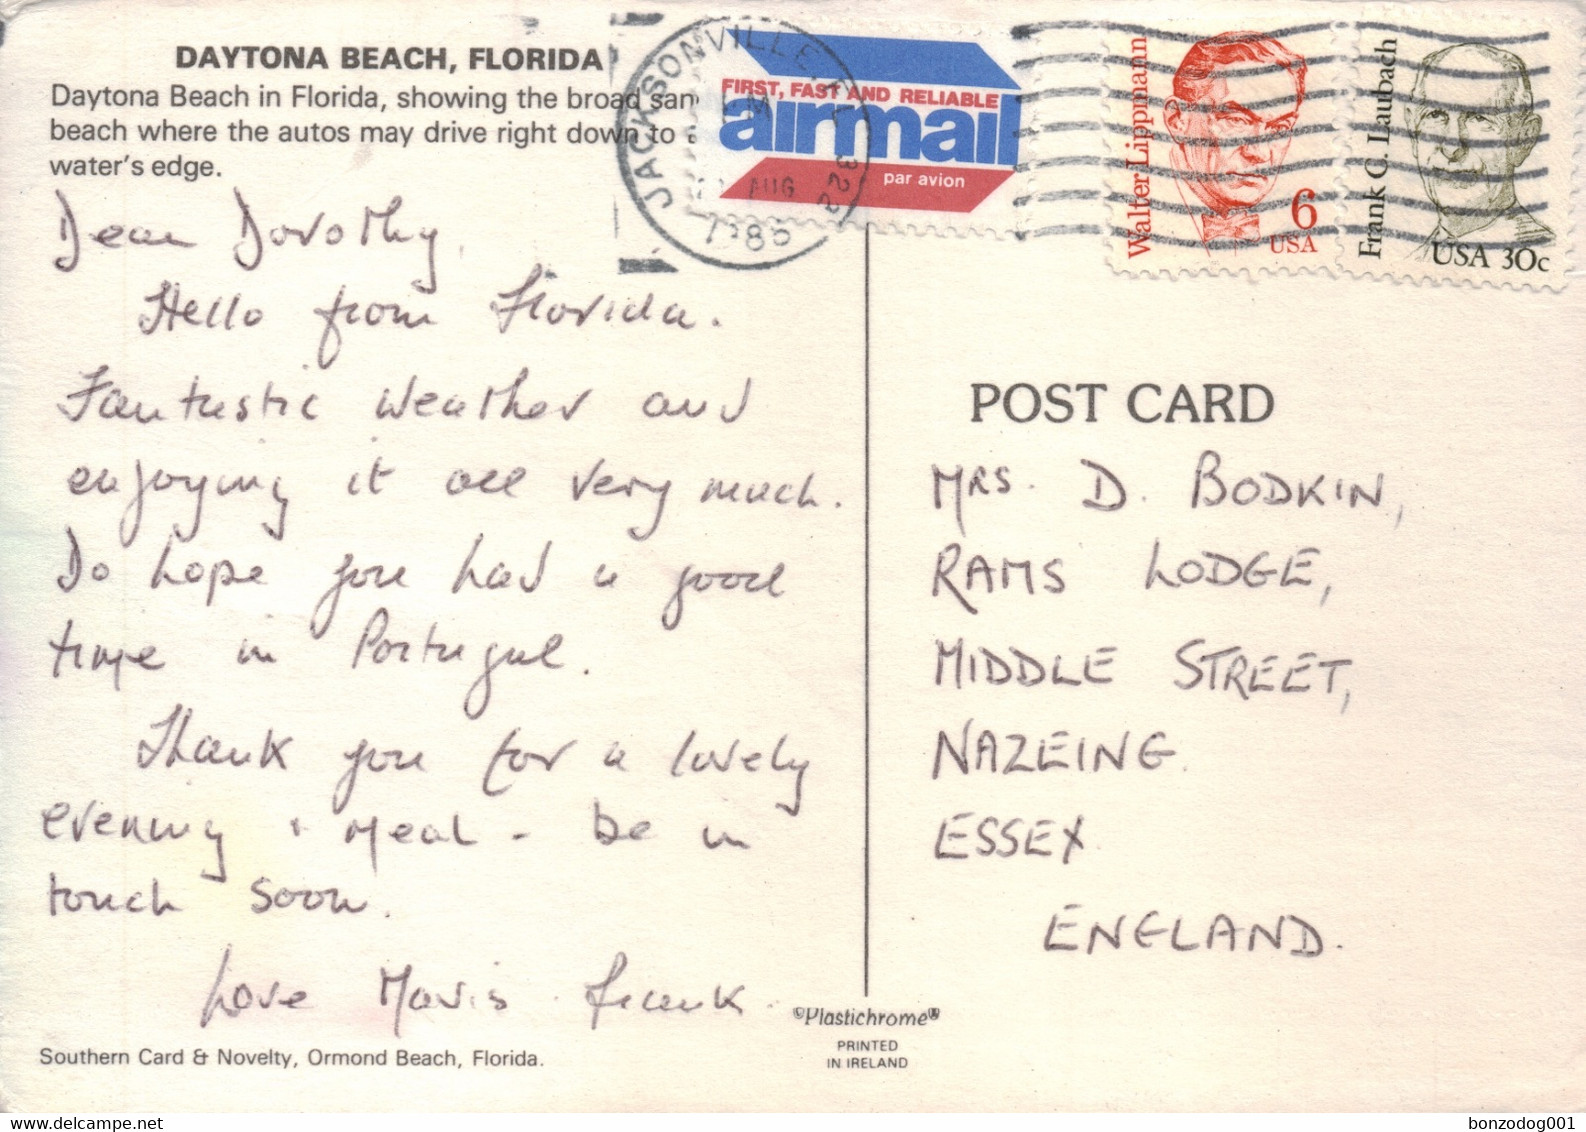 DAYTONA BEACH, FLORIDA
Daytona Beach in Florida, showing the broad san
beach where the autos may drive right down to
water's edge.
JACKSONVILLE, FL 322
AUG
FIRST, FAST AND RELIABLE
airmail
par avion
Walter Lippmann
6
USA
Frank C. Laubach
USA 30c
Dear Dorothy,
Hello from Florida.
Fantastic weather and
enjoying it all very much.
Do hope you had a good
time in Portugal.
Thank you for a lovely
evening & meal - be in
touch soon.
Love Mavis Frank.
POST CARD
MRS. D. BODKIN,
RAMS LODGE,
MIDDLE STREET,
NAZEING.
ESSEX
ENGLAND.
©Plastichrome®
PRINTED
IN IRELAND
Southern Card & Novelty, Ormond Beach, Florida.
bonzodog001